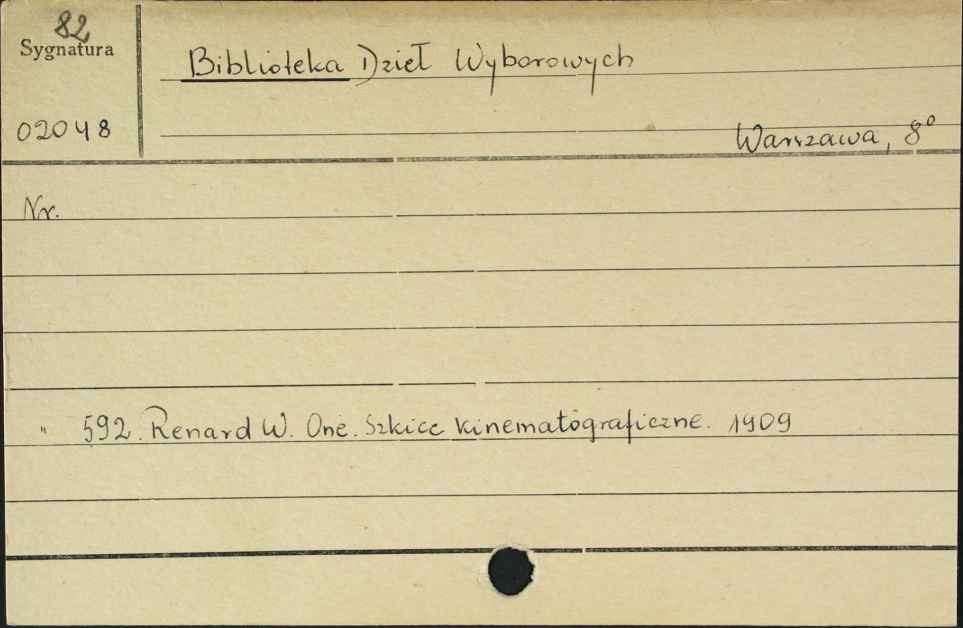 82
Sygnatura
Biblioteka Dzieł Wyborowych
02048
Warszawa, 8°
Nr.
" 592. Renard W. One. Szkice kinematograficzne. 1909